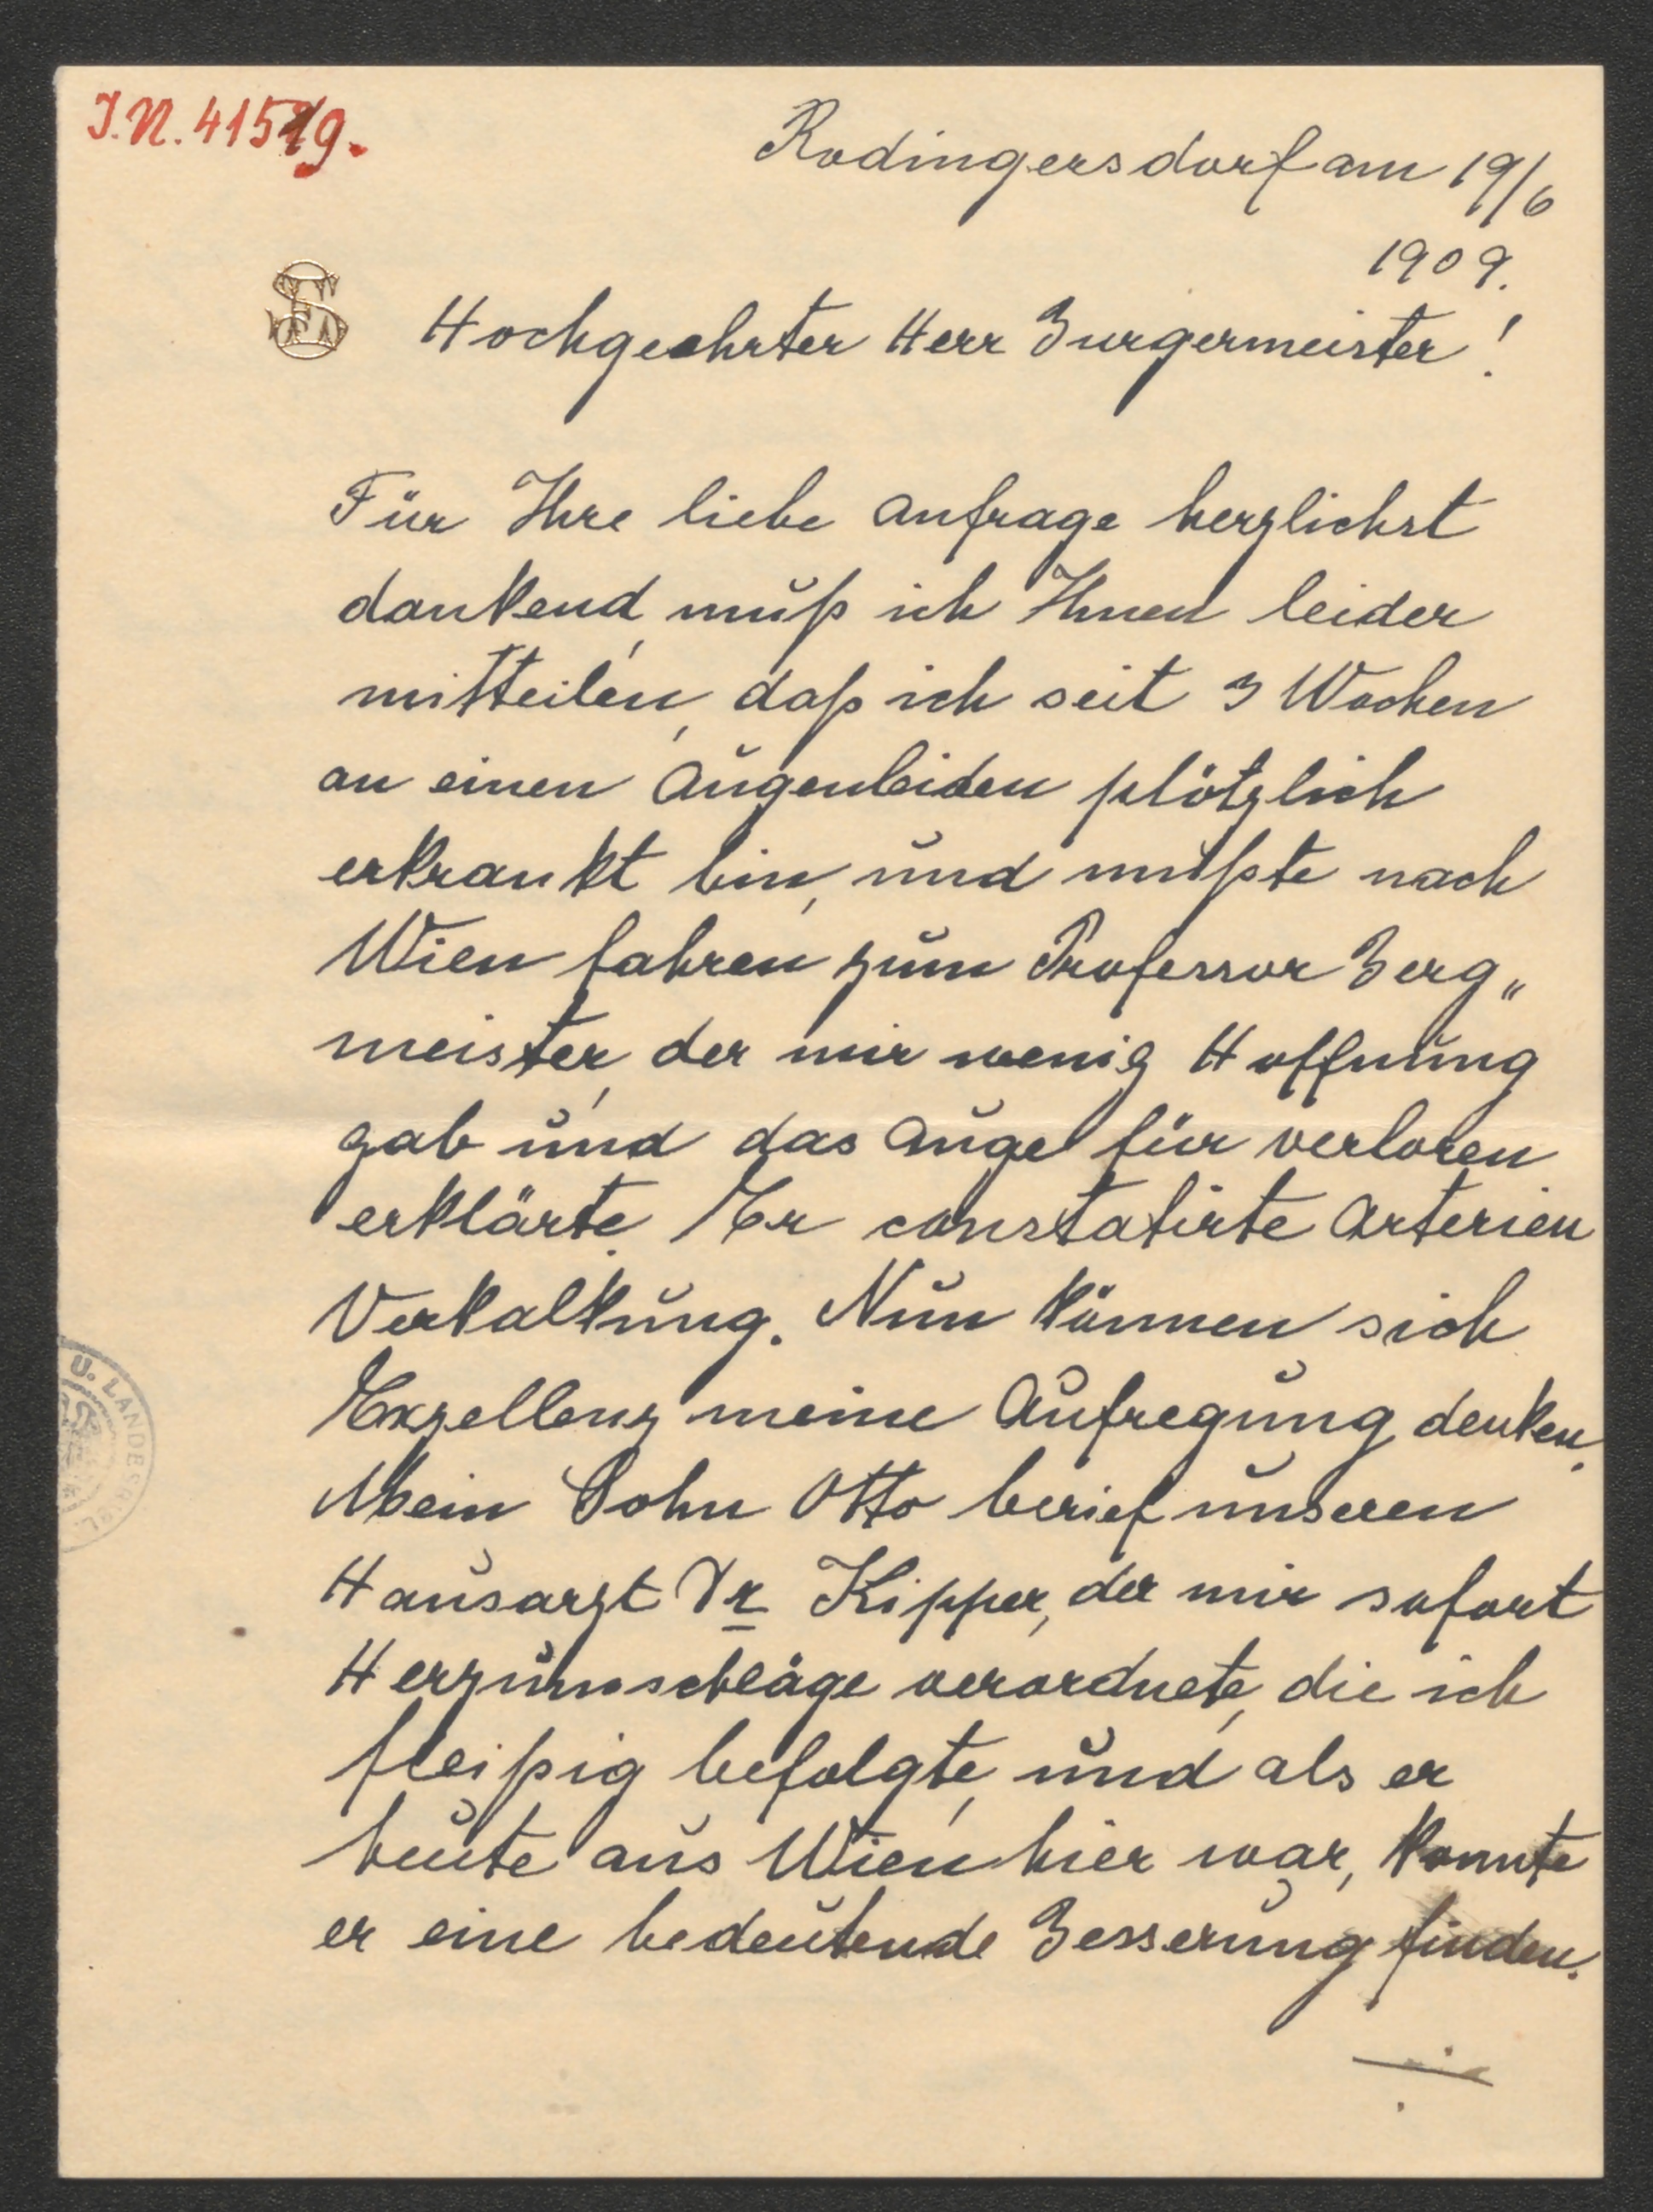 J.N. 41519.
Rodingersdorf am 19/6
1909.
Hochgeehrter Herr Burgermeister!
Für Ihre liebe Anfrage herzlichst
dankend, muß ich Ihnen leider
mitteilen, daß ich seit 3 Wochen
an einen Augenleiden plötzlich
erkrankt bin, und mußte nach
Wien fahren zum Professor Berg„
meister, der mir wenig Hoffnung
gab und das Auge für verloren
erklärte. Er constatirte Arterien
Verkalkung. Nun können sich
Exzellenz meine Aufregung denken.
Mein Sohn Otto berief unseren
Hausarzt Dr Kipper, der mir sofort
Herzumschläge verordnete, die ich
fleißig befolgte, und als er
heute aus Wien hier war, konnte
er eine bedeutende Besserung finden.
U. LANDES